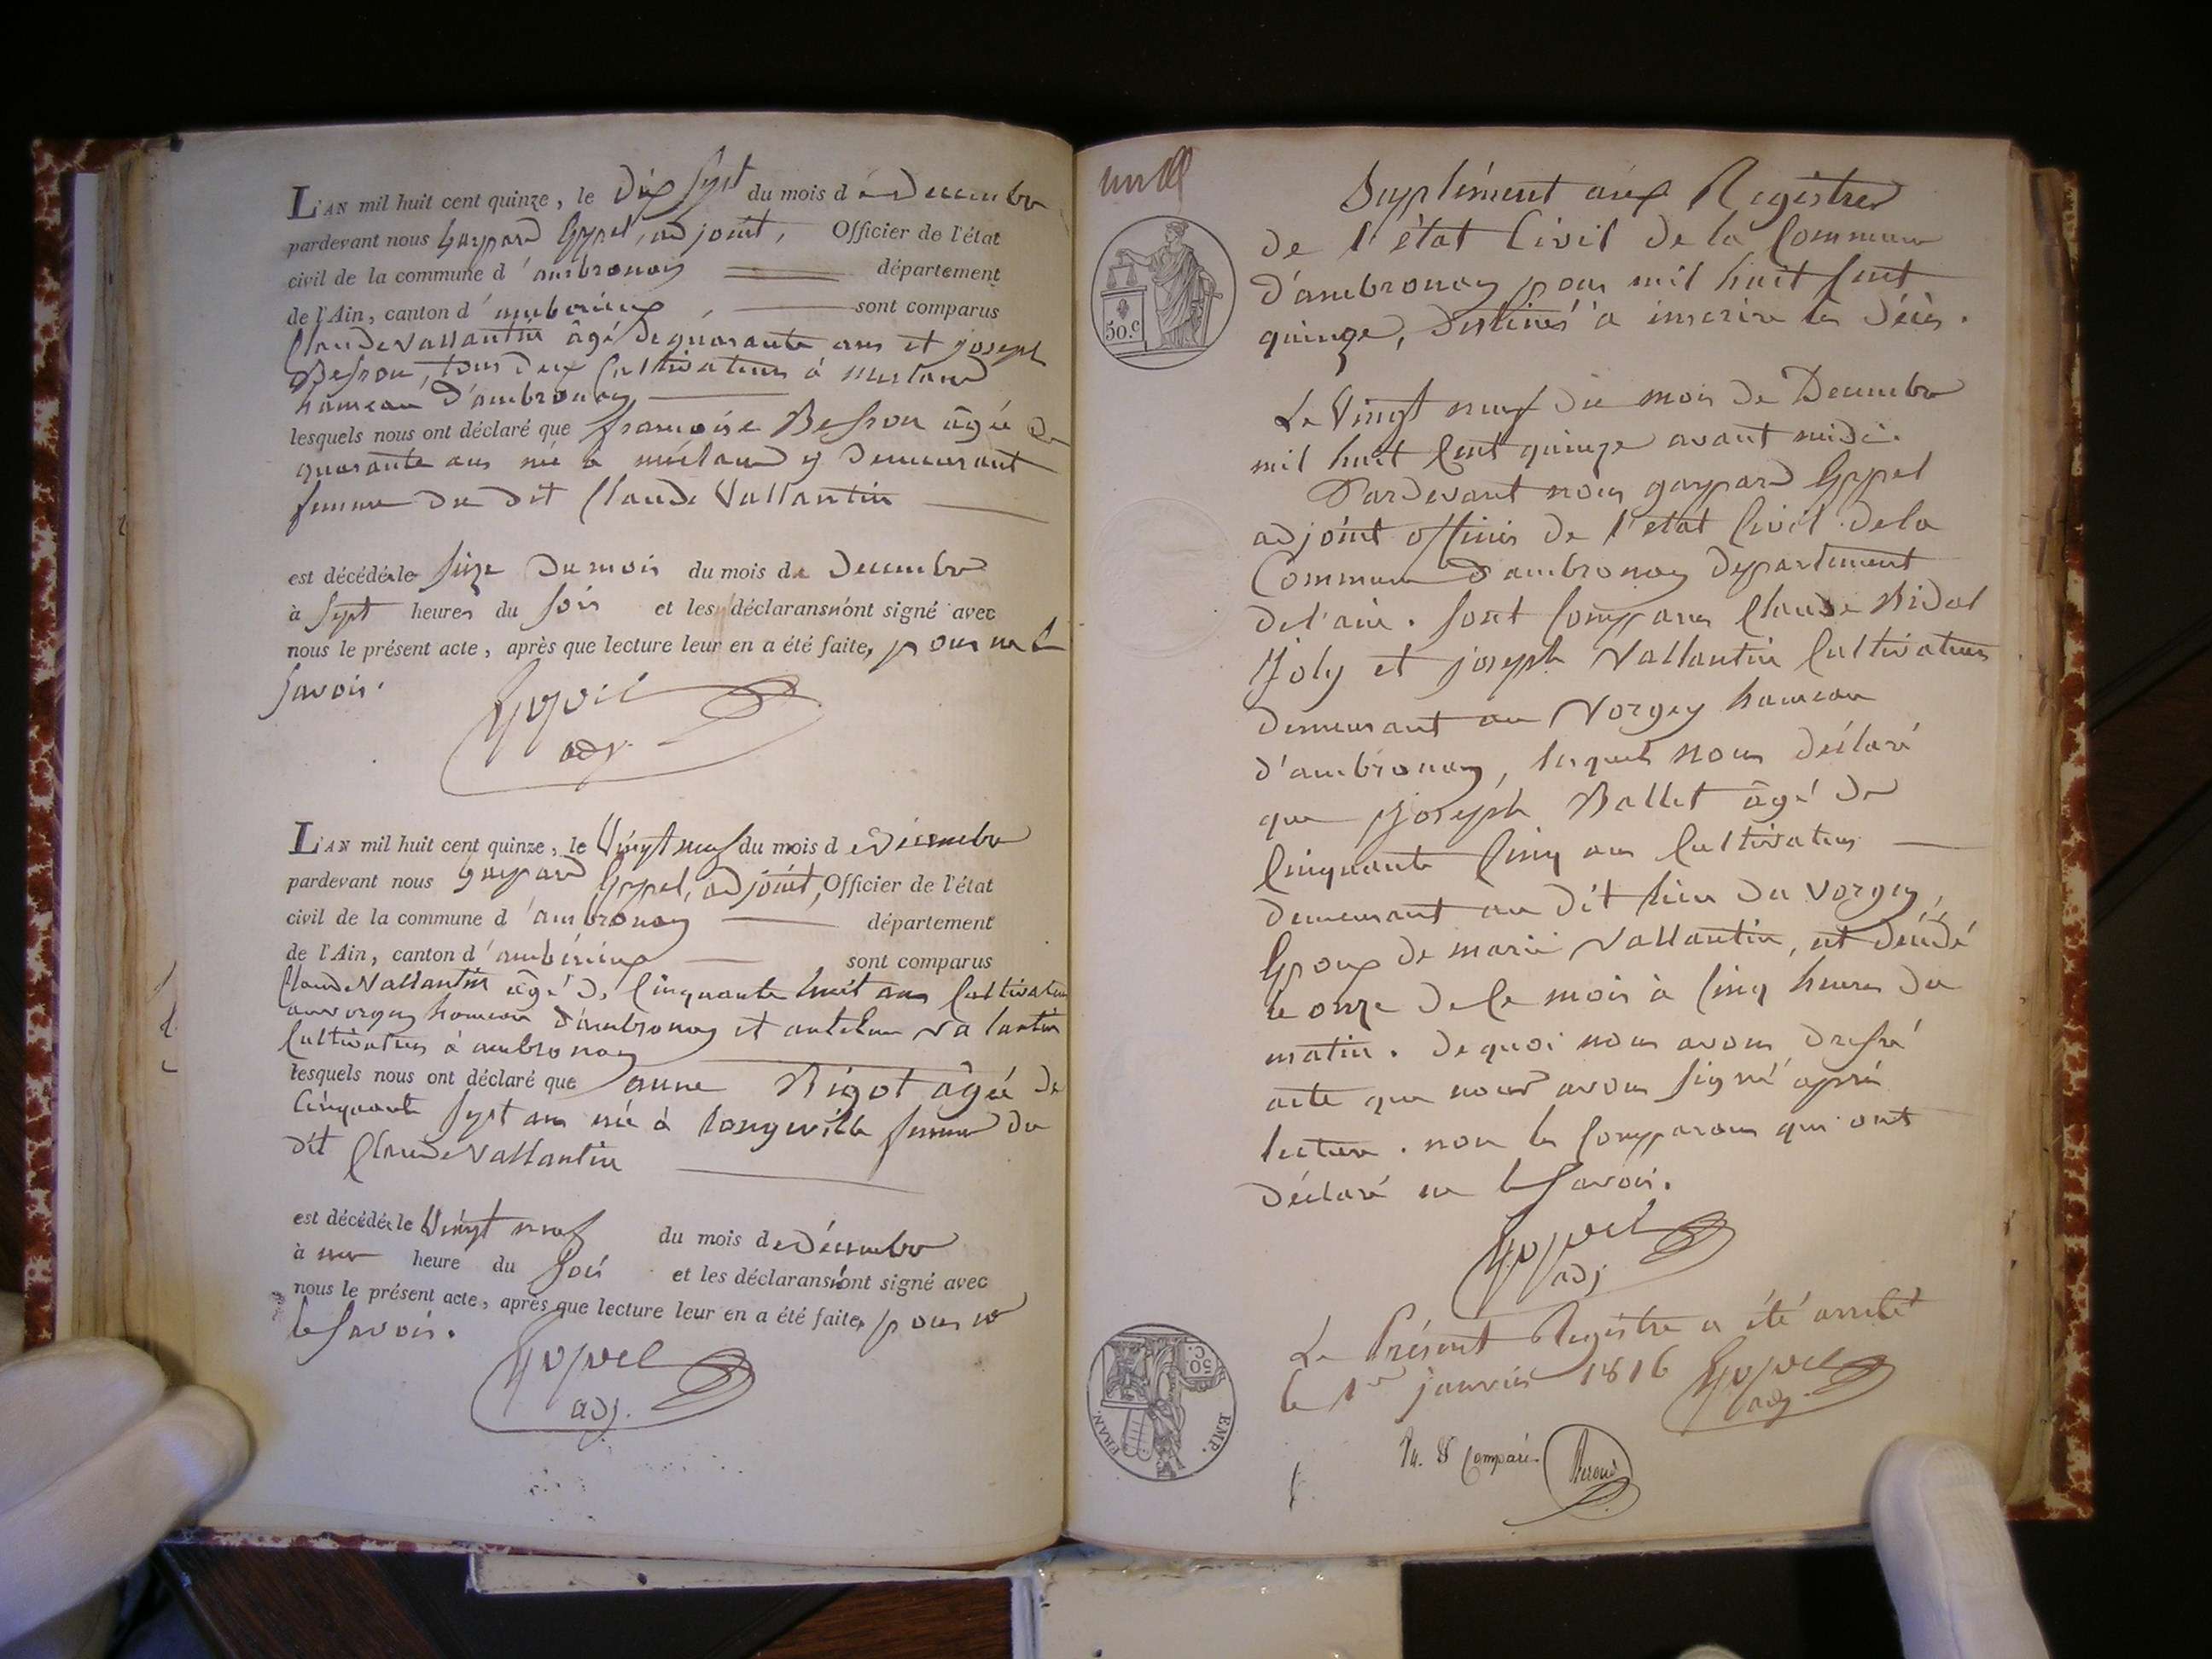 L'AN mil huit cent quinze, le dix sept du mois de Decembre
pardevant nous gaspard Goppel, adjoint, Officier de l'état
civil de la commune d'ambronay département
de l'Ain, canton d'amberieux sont comparus
Claude Vallantin âgé de quarante ans et joseph
Besson, tous deux Cultivateurs à
hameau d'ambronay
lesquels nous ont déclaré que francoise Besson âgée de
quarante ans née à y demeurant
femme du dit Claude Vallantin
est décédée le seize du mois du mois de Decembre
à sept heures du soir et les déclarans n'ont signé avec
nous le présent acte, après que lecture leur en a été faite, pour ne le
savoir.
adj.
L'AN mil huit cent quinze, le Vingt neuf du mois de Décembre
pardevant nous gaspard Goppel, adjoint, Officier de l'état
civil de la commune d'ambronay département
de l'Ain, canton d'ambérieux sont comparus
Claude Vallantin âgé de Cinquante huit ans Cultivateur
au vorgey hameau d'ambronay et antelme Vallantin
Cultivateur à ambronay
lesquels nous ont déclaré que anne Rigot âgée de
Cinquante sept ans née à longeville femme du
dit Claude Vallantin
est décédée le Vingt neuf du mois de Décembre
à une heure du soir et les déclarans n'ont signé avec
nous le présent acte, après que lecture leur en a été faite, pour ne
le savoir.
adj.
Supplément aux Registres
de l'état Civil de la Commune
d'ambronay pour mil huit Cent
quinze, destinés à inscrire les décès.
50.c
Le Vingt neuf du mois de Decembre
mil huit Cent quinze avant midi.
Pardevant nous gaspard Goppel
adjoint officier de l'etat Civil de la
Commune d'ambronay Departement
de l'ain. sont Comparus Claude Bidal
Joly et joseph Vallantin Cultivateurs
demeurant au Vorgey hameau
d'ambronay, lesquels nous déclaré
que joseph Ballet âgé de
Cinquante Cinq ans Cultivateur
demeurant au dit lieu du vorgey,
Epoux de marie Vallantin, est décédé
le onze de Ce mois à Cinq heures du
matin. de quoi nous avons dressé
acte que nous avons signé après
lecture. non les Comparans qui ont
déclaré ne le savoir.
adj
Le Présent Registre a été arrêté
le 1er janvier 1816
adj
50 C.
EMP. FRAN.